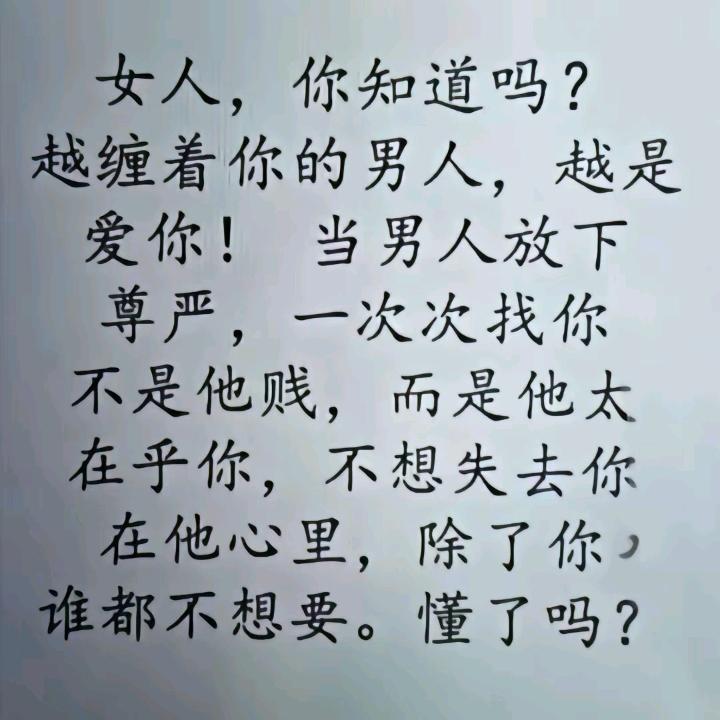 女人，你知道吗？
越缠着你的男人，越是
爱你！ 当男人放下
尊严，一次次找你
不是他贱，而是他太
在乎你，不想失去你
在他心里，除了你，
谁都不想要。懂了吗？